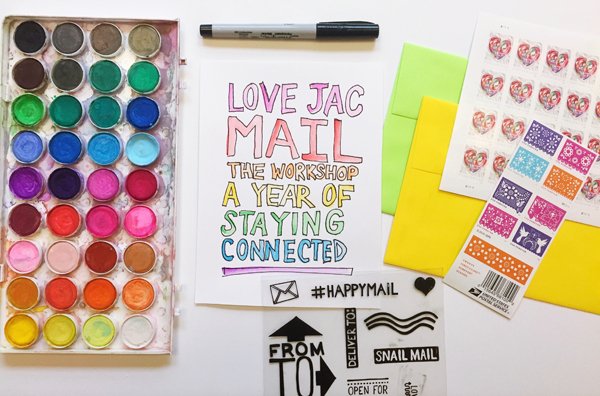 LOVE JAC
MAIL
THE WORKSHOP
A YEAR OF
STAYING
CONNECTED
#HAPPYMAIL
FROM
TO
DELIVER TO:
SNAIL MAIL
OPEN FOR
UNITED STATES
POSTAL SERVICE